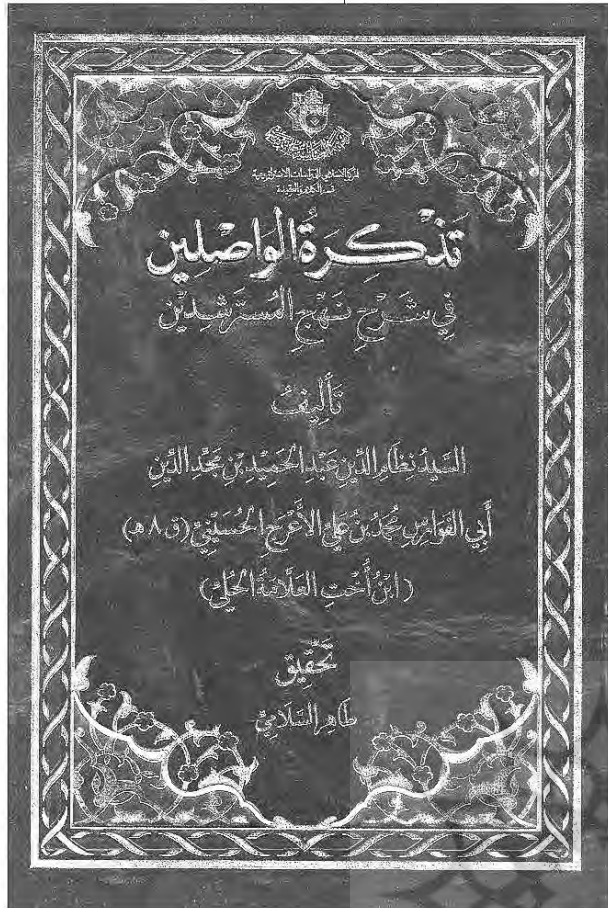 المركز الإسلامي للدراسات الاستراتيجية
تَذْكِرَةُ الْوَاصِلِين
فِي شَرْحِ نَهْجِ الْمُسْتَرْشِدِيْن
تَأْلِيفُ
السَّيِّدُ نِظَامُ الدِّينِ عَبْدُ الْحَمِيْدِ بْنِ مَجْدِ الدِّيْن
أَبِي الْفَوَارِسِ مُحَمَّدُ بْنُ عَلِيِّ الْأَعْرَجِ الْحُسَيْنِيِّ (ق ٨ هـ)
(ابْنُ أُخْتِ الْعَلَّامَةِ الْحُلِّيِّ)
تَحْقِيق
طَاهِرُ السَّلَامِيّ